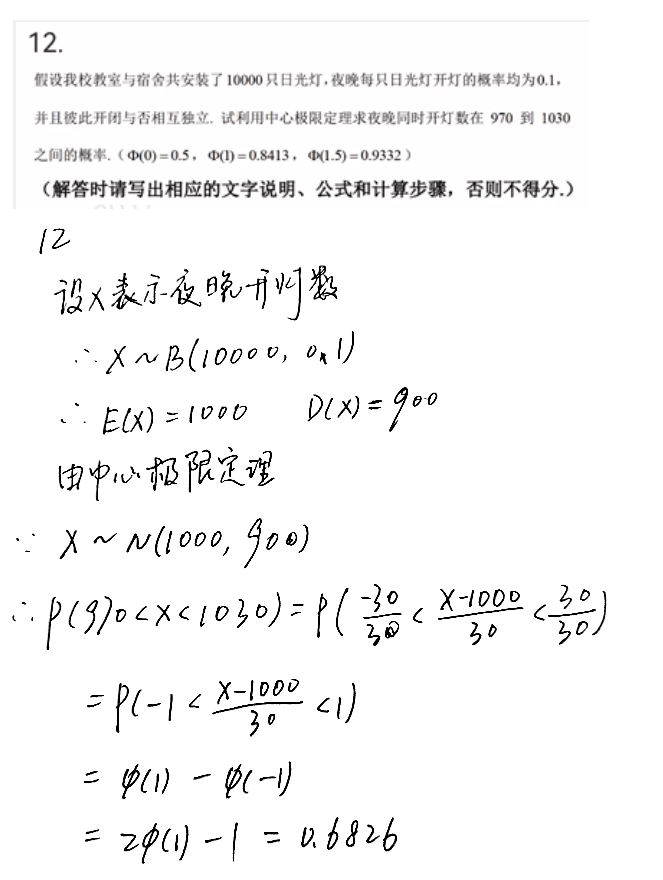 12.
假设我校教室与宿舍共安装了10000只日光灯,夜晚每只日光灯开灯的概率均为0.1,
并且彼此开闭与否相互独立. 试利用中心极限定理求夜晚同时开灯数在 970 到 1030
之间的概率.(Φ(0)=0.5, Φ(1)=0.8413, Φ(1.5)=0.9332)
(解答时请写出相应的文字说明、公式和计算步骤，否则不得分.)
12
设X表示夜晚开灯数
∴ X~B(10000, 0.1)
∴ E(X)=1000 D(X)=900
由中心极限定理
∵ X~N(1000, 900)
∴ P(970<X<1030)=P(-30/30 < X-1000/30 < 30/30)
=P(-1 < X-1000/30 <1)
= φ(1) - φ(-1)
= 2φ(1) -1 = 0.6826